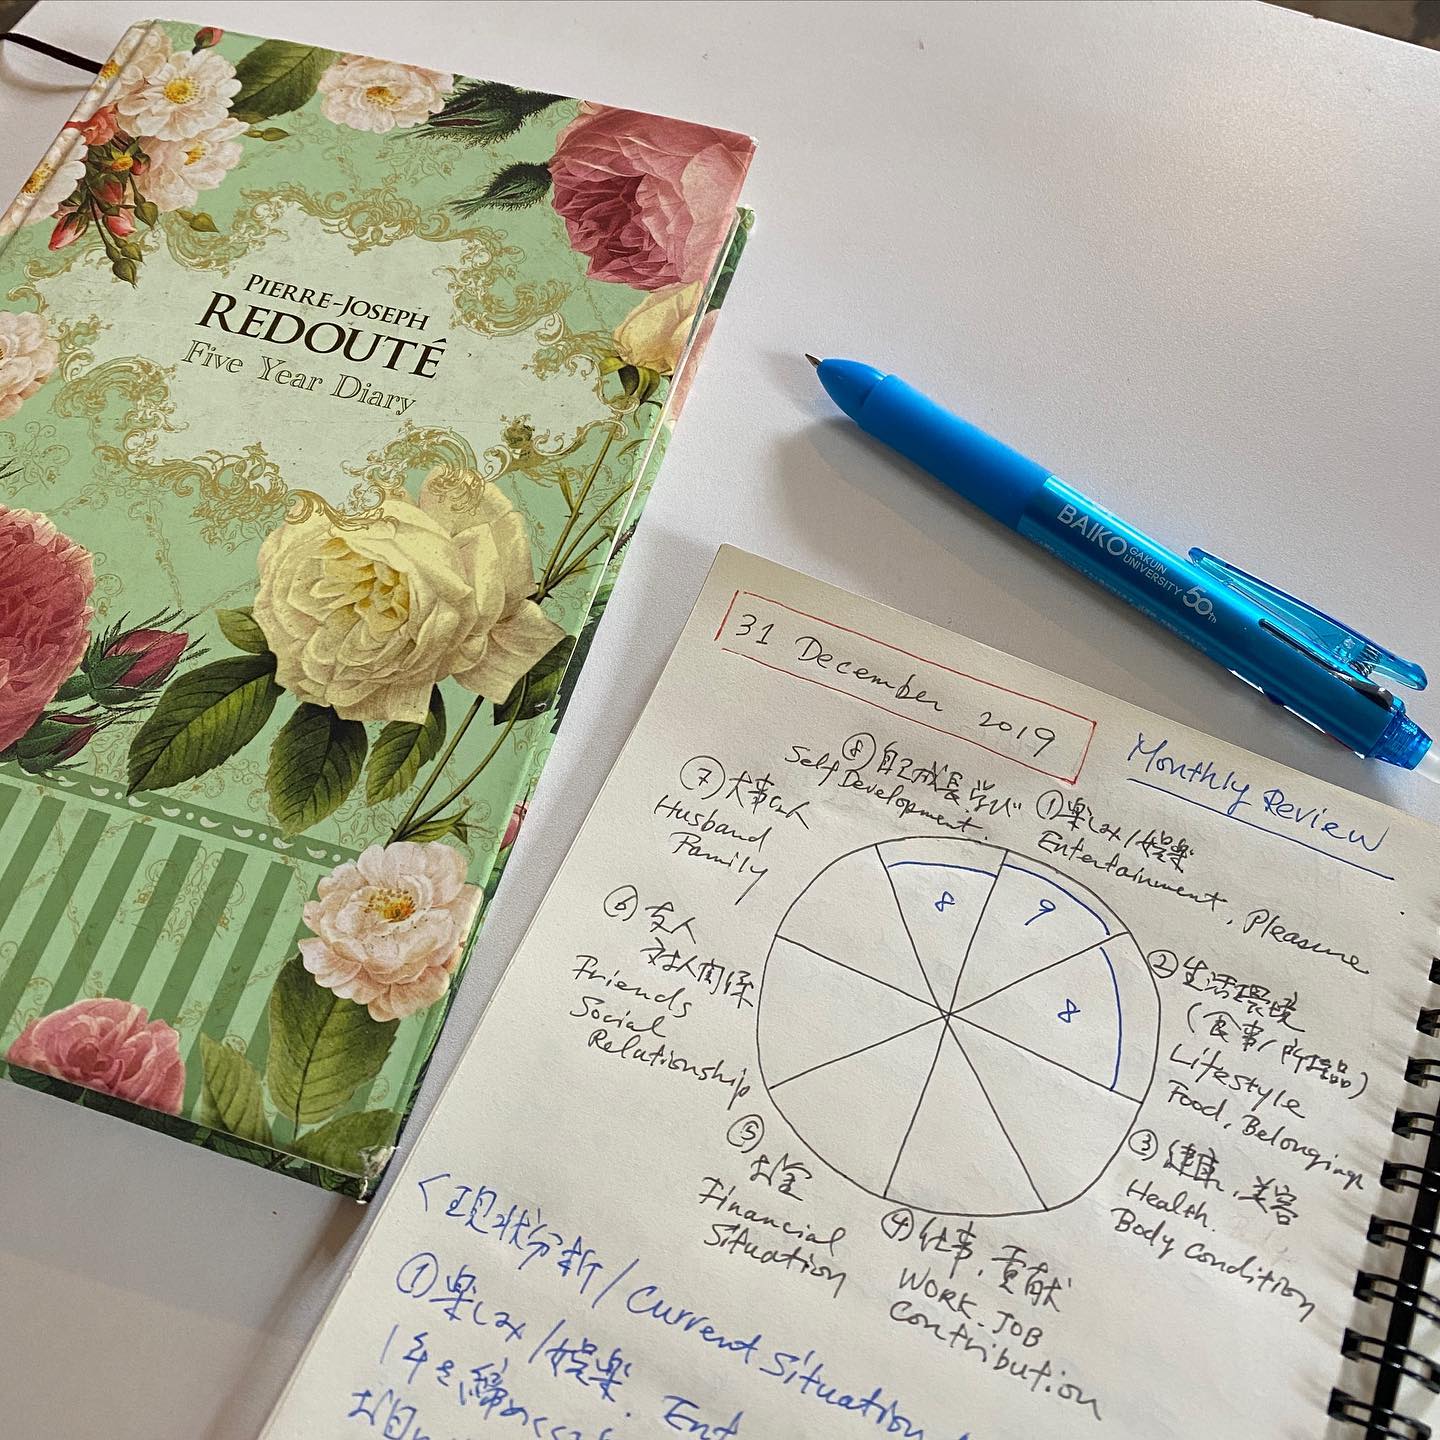 PIERRE-JOSEPH
REDOUTÉ
Five Year Diary
BAIKO GAKUIN
UNIVERSITY 50th
31 December 2019
Monthly Review
⑧自己成長、学び
Self Development.
①楽しみ/娯楽
Entertainment, Pleasure
②生活環境
(食事/所持品)
Lifestyle
Food, Belongings
③健康、美容
Health.
Body Condition
④仕事、貢献
WORK. JOB
Contribution
⑤お金
Financial
Situation
⑥友人
対人関係
Friends
Social
Relationship
⑦大事な人
Husband
Family
8
9
8
<現状分析/Current Situation
①楽しみ/娯楽. Ent
1年を締めくくる
お